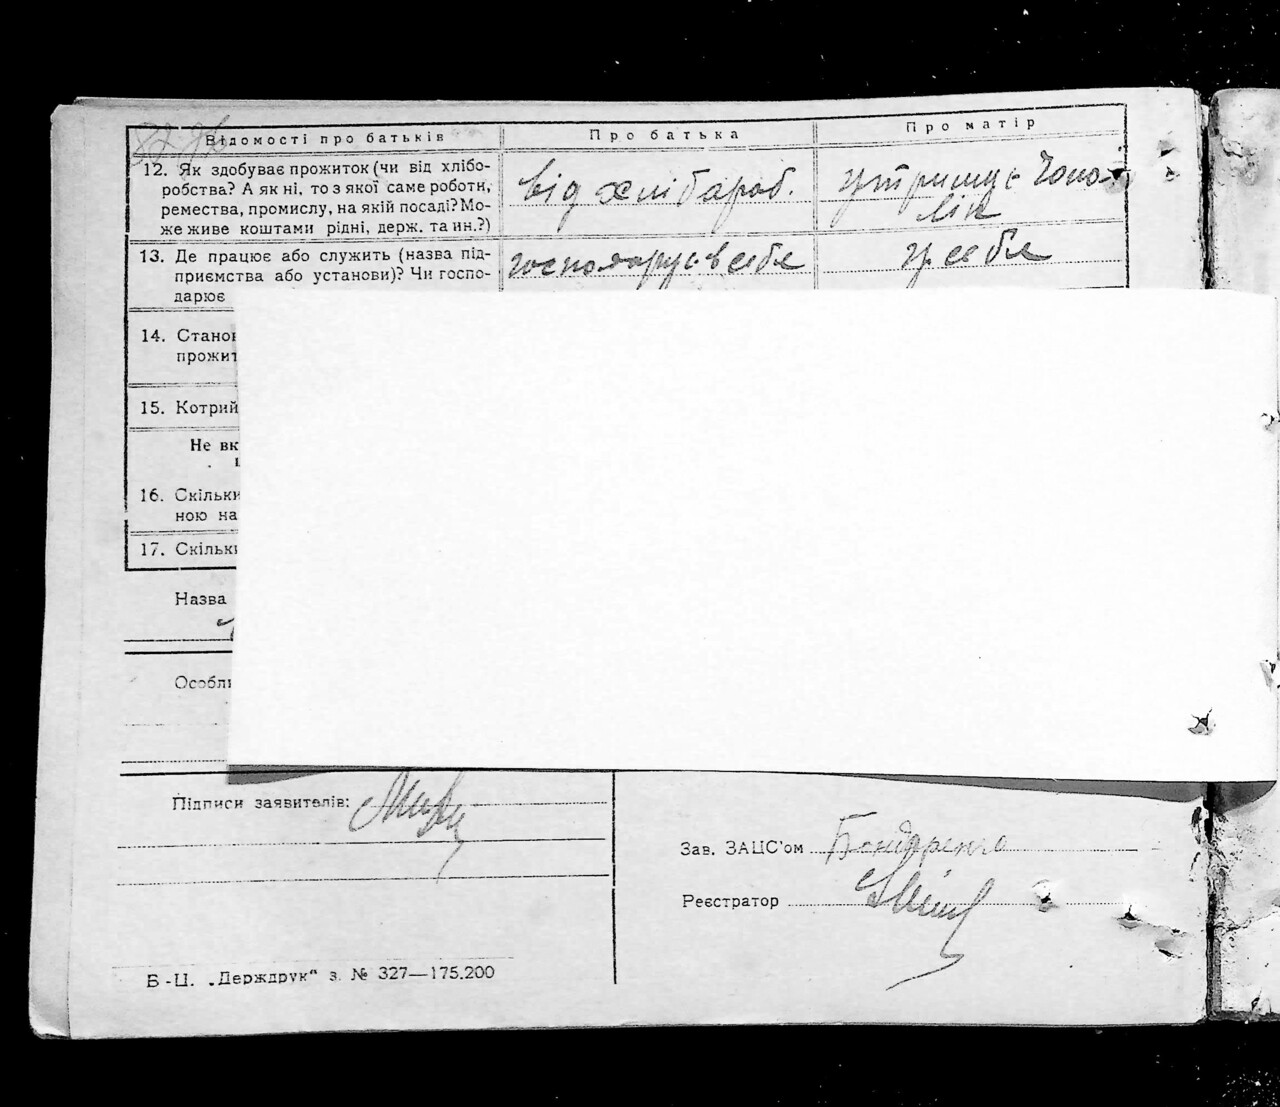 Відомості про батьків
Про батька
Про матір
12. Як здобуває прожиток (чи від хлібо-
робства? А як ні, то з якої саме роботи,
ремества, промислу, на якій посаді? Мо-
же живе коштами рідні, держ. та ин.?)
від хлібароб.
утримує Чоло-
вік
13. Де працює або служить (назва під-
приємства або установи)? Чи госпо-
дарює
господарує в себе
у себе
14. Стано
прожит
15. Котрий
Не вк
16. Скільки
ною на
17. Скільк
Назва
Особл
Підписи заявителів:
Зав. ЗАЦС'ом Бондаренко
Реєстратор
Б-Ц. „Держдрук“ з. № 327—175.200